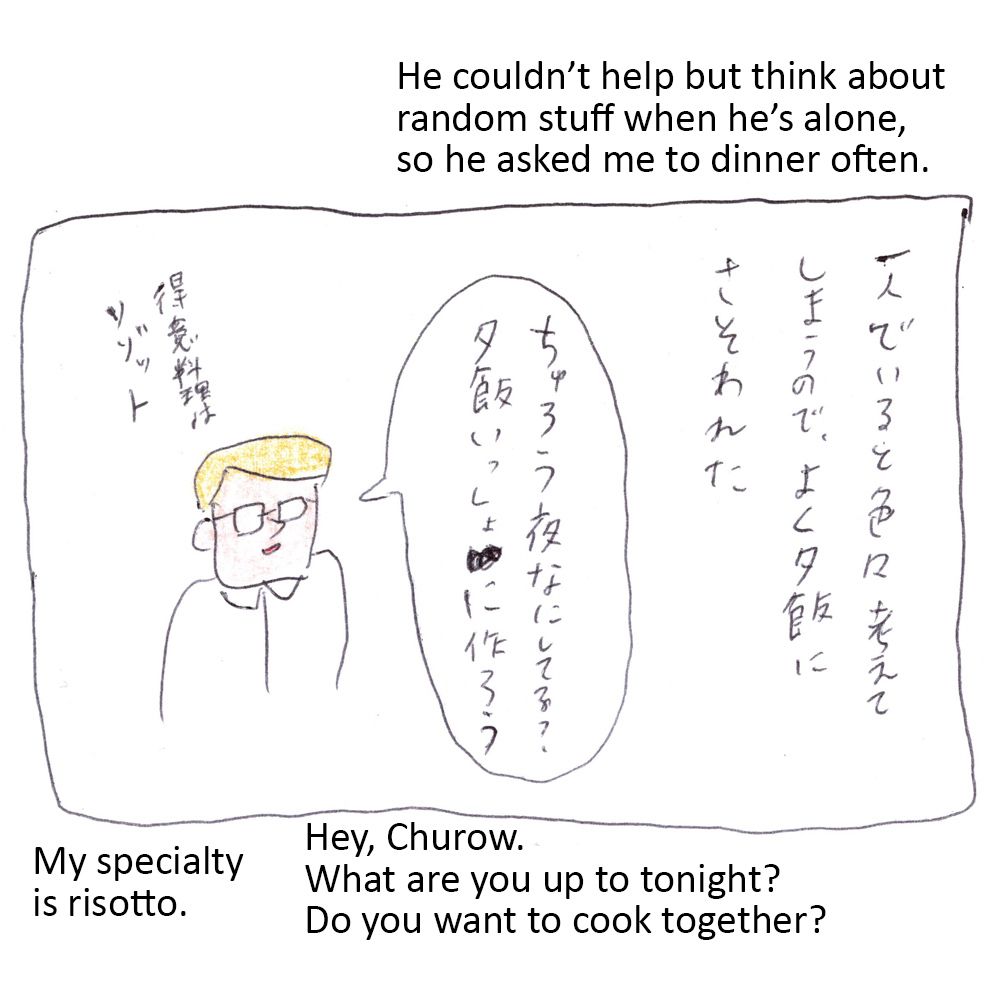 He couldn’t help but think about
random stuff when he’s alone,
so he asked me to dinner often.
一人でいると色々考えて
しまうので、よく夕飯に
さそわれた
ちゅろう夜なにしてる？
夕飯いっしょに作ろう
得意料理は
リゾット
My specialty
is risotto.
Hey, Churow.
What are you up to tonight?
Do you want to cook together?